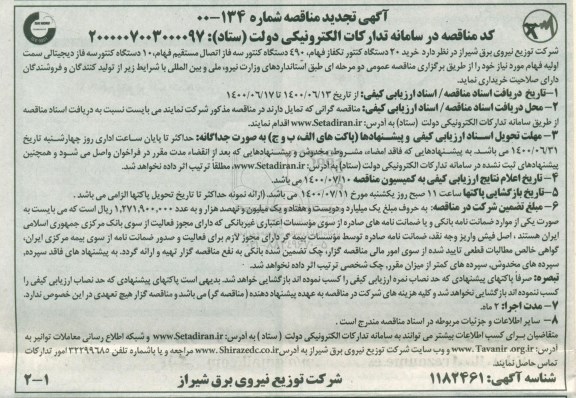 آگهی تجدید مناقصه شماره ۱۳۴-۰۰
کد مناقصه در سامانه تدارکات الکترونیکی دولت (ستاد): ۲۰۰۰۰۰۷۰۰۳۰۰۰۰۹۷
شرکت توزیع نیروی برق شیراز در نظر دارد خرید ۲۰ دستگاه کنتور تکفاز فهام، ۴۹۰ دستگاه کنتور سه فاز اتصال مستقیم فهام، ۱۰ دستگاه کنتور سه فاز دیجیتالی سمت
اولیه فهام مورد نیاز خود را از طریق برگزاری مناقصه عمومی دو مرحله ای طبق استانداردهای وزارت نیرو، ملی و بین المللی با شرایط زیر از تولید کنندگان و فروشندگان
دارای صلاحیت خریداری نماید.
۱-تاریخ دریافت اسناد مناقصه / اسناد ارزیابی کیفی: از تاریخ ۱۴۰۰/۰۶/۱۳ تا ۱۴۰۰/۰۶/۱۷
۲- محل دریافت اسناد مناقصه / اسناد ارزیابی کیفی: مناقصه گرانی که تمایل دارند در مناقصه مذکور شرکت نمایند می بایست نسبت به دریافت اسناد مناقصه
از طریق سامانه تدارکات الکترونیکی دولت (ستاد) به آدرس: www.Setadiran.ir اقدام نمایند.
۳-مهلت تحویل اسناد ارزیابی کیفی و پیشنهادها (پاکت های الف، ب و ج) به صورت جداگانه: حداکثر تا پایان ساعت اداری روز چهارشنبه تاریخ
۱۴۰۰/۰۶/۳۱ می باشد. به پیشنهادهایی که فاقد امضاء، مشروط، مخدوش و پیشنهادهایی که بعد از انقضاء مدت مقرر در فراخوان واصل می شود و همچنین
پیشنهادهای ثبت نشده در سامانه تدارکات الکترونیکی دولت (ستاد) به آدرس: www.Setadiran.ir مطلقاً ترتیب اثر داده نخواهد شد.
۴-تاریخ اعلام نتایج ارزیابی کیفی به کمیسیون مناقصه ۱۴۰۰/۰۷/۱۰ می باشد.
۵-تاریخ بازگشایی پاکتها ساعت ۱۱ صبح روز یکشنبه مورخ ۱۴۰۰/۰۷/۱۱ می باشد. (ارائه نمونه حداکثر تا تاریخ تحویل پاکتها الزامی می باشد.)
۶- مبلغ تضمین شرکت در مناقصه: به حروف مبلغ یک میلیارد و دویست و هفتاد و یک میلیون و نهصد هزار و به عدد ۱,۲۷۱,۹۰۰,۰۰۰ ریال است که می بایست به
صورت یکی از موارد ضمانت نامه بانکی و یا ضمانت نامه های صادره از سوی مؤسسات اعتباری غیربانکی که دارای مجوز فعالیت از سوی بانک مرکزی جمهوری اسلامی
ایران هستند، اصل فیش واریز وجه نقد، ضمانت نامه صادره توسط مؤسسات بیمه گر دارای مجوز لازم برای فعالیت و صدور ضمانت نامه از سوی بیمه مرکزی ایران،
گواهی خالص مطالبات قطعی تایید شده از سوی امور مالی مناقصه گزار، چک تضمین شده بانکی به نفع مناقصه گزار تهیه و ارائه گردد. به پیشنهاد های فاقد سپرده،
سپرده های مخدوش، سپرده های کمتر از میزان مقرر، چک شخصی ترتیب اثر داده نخواهد شد.
تبصره: صرفاً پاکتهای پیشنهادی که حد نصاب نمره ارزیابی کیفی را کسب نموده اند بازگشایی خواهد شد. بدیهی است پاکتهای پیشنهادی که حد نصاب ارزیابی کیفی را
کسب ننموده اند بازگشایی نخواهد شد و کلیه هزینه های شرکت در مناقصه به عهده پیشنهاد دهنده (مناقصه گر) می باشد و مناقصه گزار هیچ تعهدی در این خصوص ندارد.
۷- مدت اجرا: ۲ ماه.
۸- سایر اطلاعات و جزئیات مربوطه در اسناد مناقصه مندرج است.
متقاضیان برای کسب اطلاعات بیشتر می توانند به سامانه تدارکات الکترونیکی دولت (ستاد) به آدرس: www.Setadiran.ir و شبکه اطلاع رسانی معاملات توانیر به
آدرس: www.Tavanir.org.ir و وب سایت شرکت توزیع نیروی برق شیراز به آدرس www.Shirazedc.co.ir مراجعه و یا باشماره تلفن ۳۲۲۹۹۶۸۵ امور تدارکات
تماس حاصل نمایند.
شناسه آگهی: ۱۱۸۲۴۶۱ شرکت توزیع نیروی برق شیراز ۲-۱